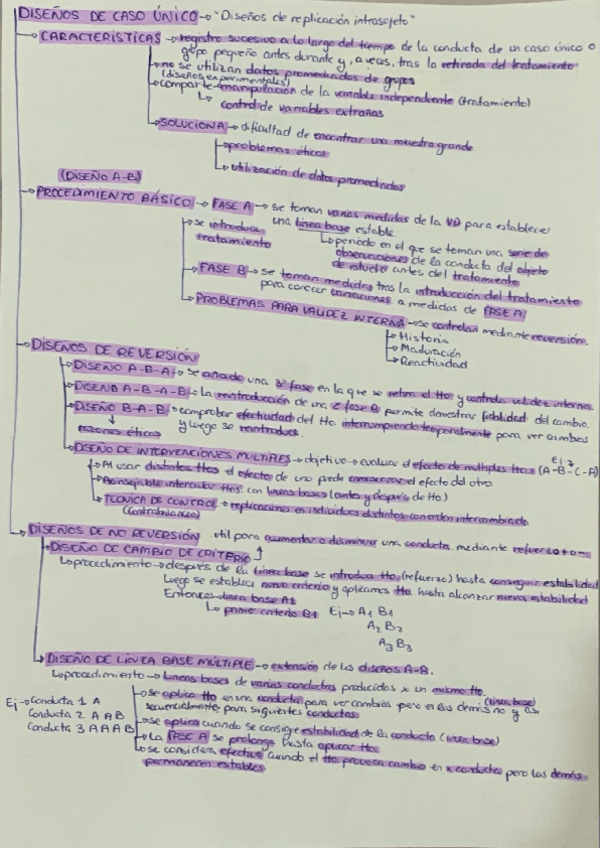 DISEÑOS DE CASO ÚNICO → "Diseños de replicación intrasujeto"
CARACTERÍSTICAS → registro sucesivo a lo largo del tiempo de la conducta de un caso único o
grupo pequeño antes durante y, a veces, tras la retirada del tratamiento
→ no se utilizan datos promediados de grupos
(diseños experimentales)
→ comparte → manipulación de la variable independiente (tratamiento)
↳ control de variables extrañas
→ SOLUCIONA → dificultad de encontrar una muestra grande
→ problemas éticos
→ utilización de datos promediados
(DISEÑO A-B)
PROCEDIMIENTO BÁSICO → FASE A → se toman varias medidas de la VD para establecer
una línea base estable
→ se introduce
tratamiento
↳ periodo en el que se toman una serie de
observaciones de la conducta del objeto
de estudio antes del tratamiento
→ FASE B → se toman medidas tras la introducción del tratamiento
para conocer variaciones a medidas de FASE A
→ PROBLEMAS PARA VALIDEZ INTERNA → se controlan mediante reversión.
→ Historia
→ Maduración
→ Reactividad
DISEÑOS DE REVERSIÓN
→ DISEÑO A-B-A → se añade una 3ª fase en la que se retira el tto y controla validez interna
→ DISEÑO A-B-A-B → La reintroducción de una 2ª fase B permite demostrar fiabilidad del cambio.
→ DISEÑO B-A-B → comprobar efectividad del tto interrumpiendo temporalmente para ver cambios
y luego se reintroduce.
↓
razones éticas
→ DISEÑO DE INTERVENCIONES MÚLTIPLES → objetivo → evaluar el efecto de múltiples ttos (A-B-C-A)
Ej
→ Al usar distintos ttos el efecto de uno puede enmascarar el efecto del otro.
→ Aconsejable intercalar ttos con líneas bases (antes y después de tto.)
→ TÉCNICA DE CONTROL → replicaciones en individuos distintos con orden intercambiado
(Contrabalanceo)
DISEÑOS DE NO REVERSIÓN útil para aumentar o disminuir una conducta mediante refuerzo + o -
→ DISEÑO DE CAMBIO DE CRITERIO
↳ procedimiento → después de la línea base se introduce tto (refuerzo) hasta conseguir estabilidad
Luego se establece nuevo criterio y aplicamos tto hasta alcanzar nueva estabilidad
Entonces → línea base A1
↳ primer criterio B1 Ej → A1 B1
A2 B2
A3 B3
→ DISEÑO DE LÍNEA BASE MÚLTIPLE → extensión de los diseños A-B.
↳ procedimiento → Líneas bases de varias conductas producidas x un mismo tto.
→ se aplica tto en una conducta para ver cambios pero en las demás no (línea base) y así
secuencialmente para siguientes conductas
Ej → Conducta 1 A
Conducta 2 A A B
Conducta 3 A A A B
→ se aplica cuando se consigue estabilidad de la conducta (línea base)
→ La FASE A se prolonga hasta aplicar tto
→ se considera efectivo cuando el tto provoca cambio en x conducta pero las demás
permanecen estables